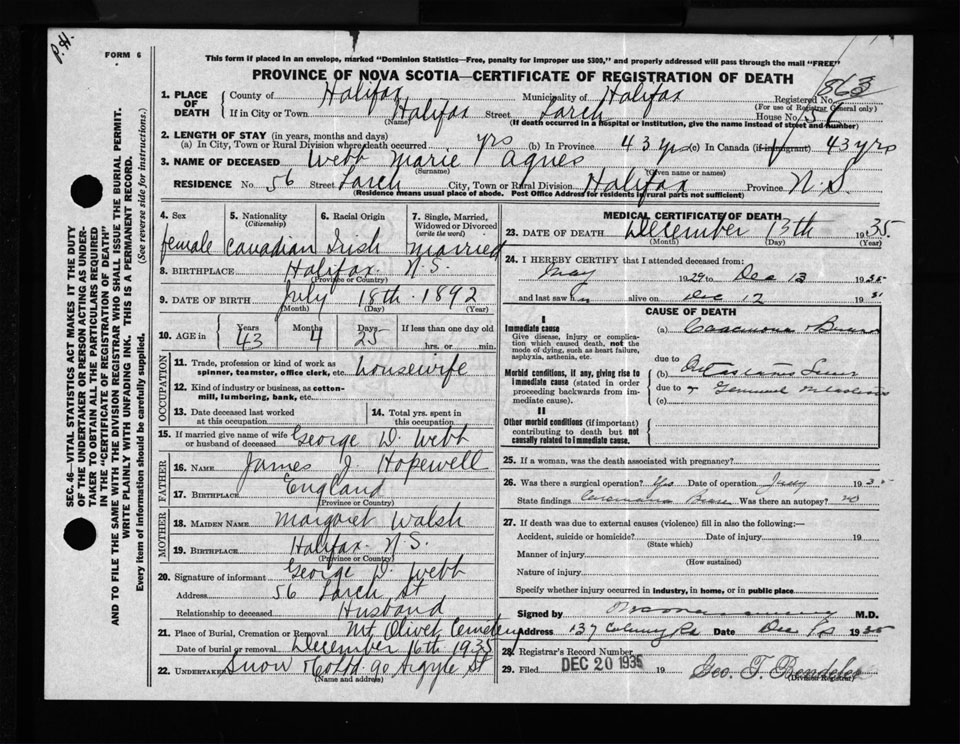 P.H.
FORM 6
This form if placed in an envelope, marked "Dominion Statistics—Free, penalty for improper use $300," and properly addressed will pass through the mail "FREE"
PROVINCE OF NOVA SCOTIA—CERTIFICATE OF REGISTRATION OF DEATH
1. PLACE OF DEATH
County of Halifax Municipality of Halifax Registered No. 863
(For use of Registrar General only)
If in City or Town Halifax Street Larch House No. 56
(Name) (If death occurred in a hospital or institution, give the name instead of street and number)
2. LENGTH OF STAY (in years, months and days)
(a) In City, Town or Rural Division where death occurred yrs (b) In Province 43 yrs (c) In Canada (if immigrant) 43 yrs
3. NAME OF DECEASED Webb Marie Agnes
(Surname) (Given name or names)
RESIDENCE No. 56 Street Larch City, Town or Rural Division Halifax Province N.S.
(Residence means usual place of abode. Post Office Address for residents in rural parts not sufficient)
4. Sex female
5. Nationality (Citizenship) Canadian
6. Racial Origin Irish
7. Single, Married, Widowed or Divorced (write the word) Married
8. BIRTHPLACE Halifax N.S.
(Province or Country)
9. DATE OF BIRTH July 18th 1892
(Month) (Day) (Year)
10. AGE in Years 43 Months 4 Days 25 If less than one day old hrs. or min.
OCCUPATION
11. Trade, profession or kind of work as spinner, teamster, office clerk, etc. housewife
12. Kind of industry or business, as cotton-mill, lumbering, bank, etc.
13. Date deceased last worked at this occupation
14. Total yrs. spent in this occupation
15. If married give name of wife or husband of deceased George D. Webb
FATHER
16. NAME James J. Hopewell
17. BIRTHPLACE England
(Province or Country)
MOTHER
18. MAIDEN NAME Margaret Walsh
19. BIRTHPLACE Halifax N.S.
(Province or Country)
20. Signature of informant George D. Webb
Address 56 Larch St
Relationship to deceased Husband
21. Place of Burial, Cremation or Removal Mt Olivet Cemetery
Date of burial or removal December 16th 1935
22. UNDERTAKER Snow & Co Ltd. 90 Argyle St
(Name and address)
MEDICAL CERTIFICATE OF DEATH
23. DATE OF DEATH December 13th 1935.
(Month) (Day) (Year)
24. I HEREBY CERTIFY that I attended deceased from:
May 1929 to Dec 13 1935
and last saw h alive on Dec 12 19
CAUSE OF DEATH
I
Immediate cause
Give disease, injury or complication which caused death, not the mode of dying, such as heart failure, asphyxia, asthenia, etc.
(a) Carcinoma
due to
Morbid conditions, if any, giving rise to immediate cause (stated in order proceeding backwards from immediate cause).
(b) Liver
due to
(c)
II
Other morbid conditions (if important) contributing to death but not causally related to immediate cause.
25. If a woman, was the death associated with pregnancy?
26. Was there a surgical operation? Yes Date of operation 193
State findings Carcinoma Was there an autopsy? no
27. If death was due to external causes (violence) fill in also the following:—
Accident, suicide or homicide? Date of injury 19
(State which)
Manner of injury
(How sustained)
Nature of injury
Specify whether injury occurred in industry, in home, or in public place
Signed by M.D.
Address 137 Date Dec 1935
28. Registrar's Record Number
29. Filed DEC 20 1935 19 Geo. T.
(Division Registrar)
SEC. 46—VITAL STATISTICS ACT MAKES IT THE DUTY OF THE UNDERTAKER OR PERSON ACTING AS UNDERTAKER TO OBTAIN ALL THE PARTICULARS REQUIRED IN THE "CERTIFICATE OF REGISTRATION OF DEATH" AND TO FILE THE SAME WITH THE DIVISION REGISTRAR WHO SHALL ISSUE THE BURIAL PERMIT.
WRITE PLAINLY WITH UNFADING INK. THIS IS A PERMANENT RECORD.
Every item of information should be carefully supplied. (See reverse side for instructions.)